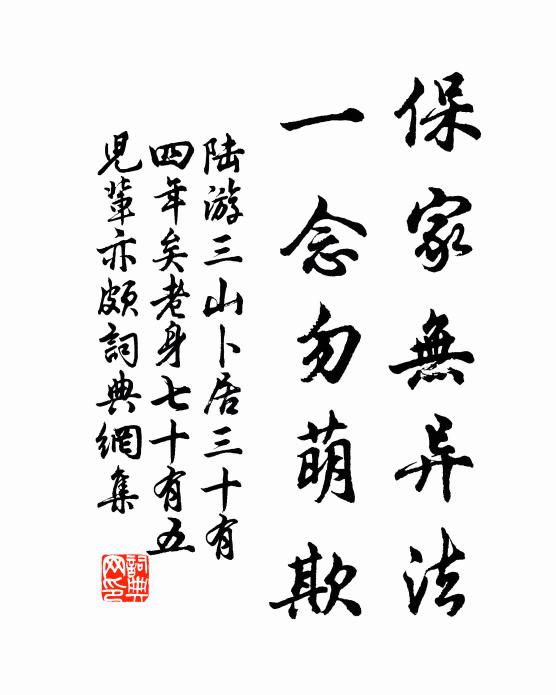 保家無异法
一念勿萌欺
陆游三山卜居三十有
四年矣老身七十有五
児輩亦頗詞典網集
詞典網印